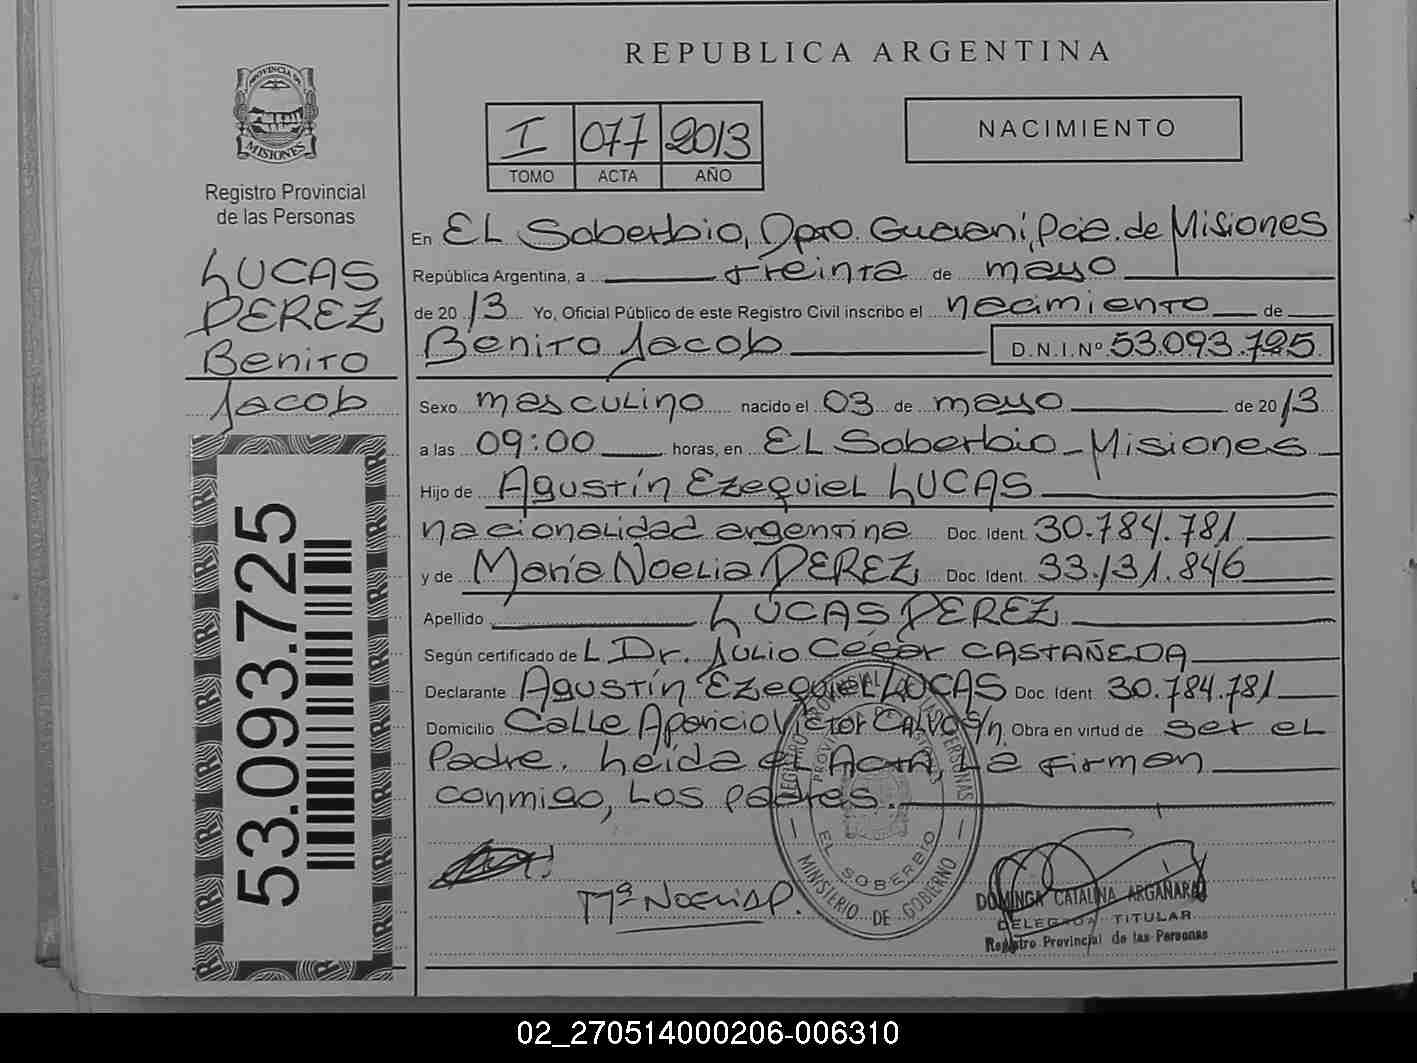 REPUBLICA ARGENTINA
PROVINCIA DE
MISIONES
Registro Provincial
de las Personas
LUCAS
PEREZ
Benito
Jacob
53.093.725
I 077 2013
TOMO ACTA AÑO
NACIMIENTO
En EL Soberbio, Dpto. Guaraní, Pcia. de Misiones
República Argentina, a treinta de mayo
de 2013 Yo, Oficial Público de este Registro Civil inscribo el nacimiento de
Benito Jacob D.N.I.Nº 53.093.725
Sexo masculino nacido el 03 de mayo de 2013
a las 09:00 horas, en EL Soberbio - Misiones
Hijo de Agustín Ezequiel LUCAS
nacionalidad argentina Doc. Ident. 30.784.781
y de María Noelia PEREZ Doc. Ident. 33.131.846
Apellido LUCAS PEREZ
Según certificado de L Dr. Julio César CASTAÑEDA
Declarante Agustín Ezequiel LUCAS Doc. Ident. 30.784.781
Domicilio Calle Aparicio Victor CALVO S/n Obra en virtud de ser el
Padre. heida el Acta, La firman
conmigo, Los padres.
REGISTRO PROVINCIAL DE LAS PERSONAS
EL SOBERBIO
MINISTERIO DE GOBIERNO
Mª Noelia P.
DOMINGA CATALINA ARGAÑARAZ
DELEGADA TITULAR
Registro Provincial de las Personas
02_270514000206-006310